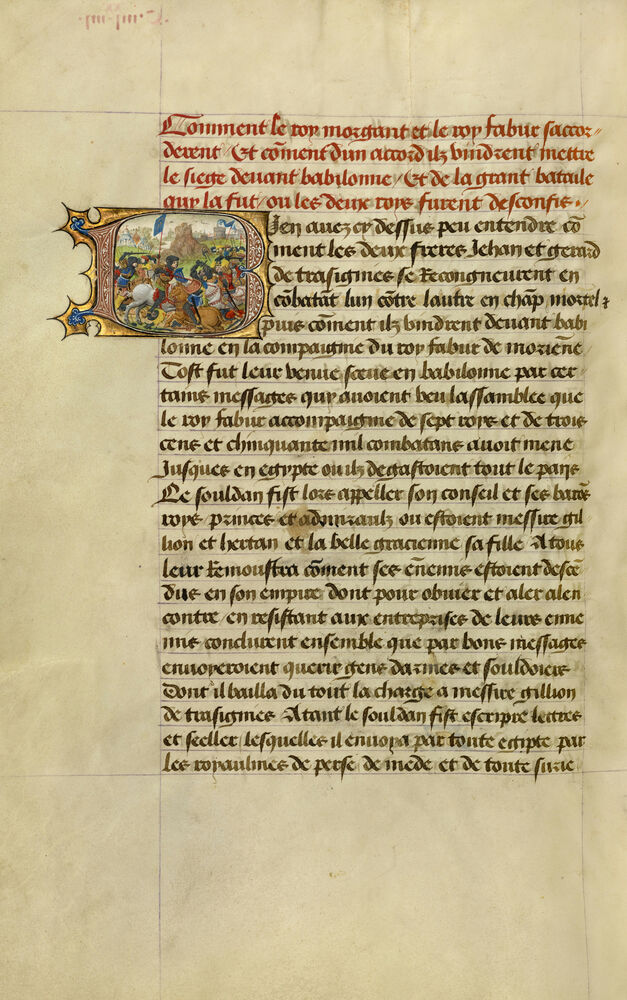 Comment le roy morgant et le roy fabur saccor-
derent / Et cōment dun accord ilz vindrent mettre
le siege deuant babilonne / Et de la grant bataille
quy la fut / ou les deux roys furent desconfis .
Bien auez cy dessus peu entendre cō
ment les deux freres Jehan et gerard
de trasignies se Recongneurent en
cōbatāt lun cōtre lautre en chāp mortel ⁊
puis cōment ilz vindrent deuant babi
lonne en la compaignie du roy fabur de moriēne
Tost fut leur venue sceue en babilonne par cer-
tains messages quy auoient veu lassamblee que
le roy fabur accompaignie de sept roys et de trois
cens et chinquante mil combatans auoit mene
Jusques en egypte ou ilz degastoient tout le pays
Le souldan fist lors appeller son conseil et ses barōs
roys princes et admiraulz ou estoient messire gil
lion et hertan et la belle gracienne sa fille A tous
leur Remoustra cōment ses ēnemis estoient descē
dus en son empire dont pour obuier et aler alen
contre / en resistant aux entreprises de leurs enne
mis conclurent ensemble que par bons messages
enuoyeroient querir gens darmes et souldoiers
Dont il bailla du tout la charge a messire gillion
de trasignies A tant le souldan fist escripre lettres
et seeller / lesquelles il enuoya par toute egipte par
les royaulmes de perse de mede et de toute surie